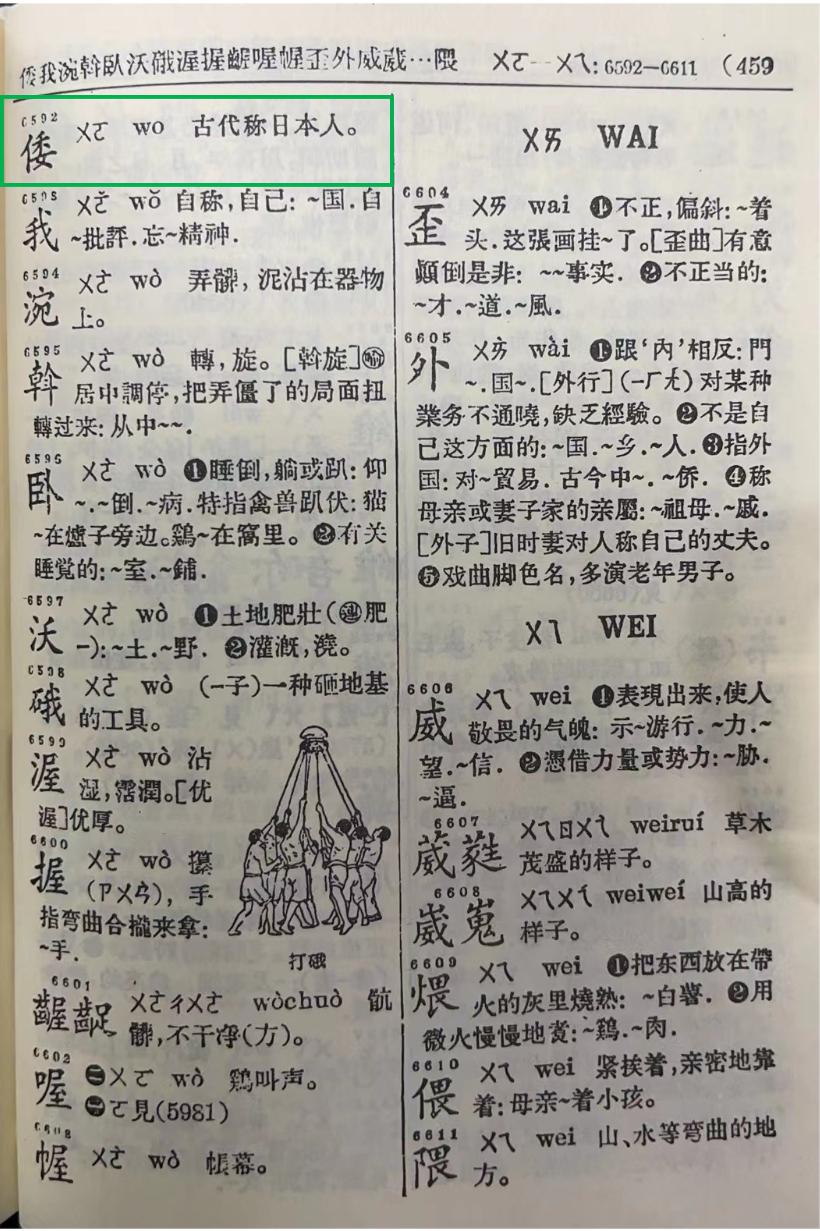 倭我涴斡臥沃硪渥握齷喔幄歪外威葳…隈 ㄨㄛ--ㄨㄟ:6592—6611 (459
6592
倭 ㄨㄛ wo 古代称日本人。
我 ㄨㄛˇ wǒ 自称,自己: ~国.自
~批評.忘~精神.
6594
涴 ㄨㄛˋ wò 弄髒, 泥沾在器物
上。
6595
斡 ㄨㄛˋ wò 轉,旋。[斡旋]㊝
居中調停,把弄僵了的局面扭
轉过来: 从中~~.
卧 ㄨㄛˋ wò ❶睡倒,躺或趴: 仰
~.~倒.~病.特指禽兽趴伏: 猫
~在爐子旁边。鷄~在窩里。❷有关
睡觉的:~室.~鋪.
6597
沃 ㄨㄛˋ wò ❶土地肥壯(㊣肥
—):~土.~野. ❷灌漑,澆。
6598
硪 ㄨㄛˋ wò (—子)一种砸地基
的工具。
6599
渥 ㄨㄛˋ wò 沾
湿,霑潤。[优
渥]优厚。
6600
握 ㄨㄛˋ wò 攥
(ㄗㄨㄢˋ), 手
指弯曲合攏来拿:
~手.
打硪
6601
齷齪 ㄨㄛˋㄔㄨㄛˋ wòchuò 骯
髒,不干净(方)。
6602
喔 ㊀ㄨㄛ wò 鷄叫声。
㊁ㄛ見(5981)
幄 ㄨㄛˋ wò 帳幕。
ㄨㄞ WAI
6604
歪 ㄨㄞ wai ❶不正,偏斜:~着
头.这張画挂~了。[歪曲]有意
顚倒是非: ~~事实. ❷不正当的:
~才.~道.~風.
6605
外 ㄨㄞˋ wài ❶跟‘内’相反: 門
~.国~.[外行](—ㄏㄤˊ) 对某种
業务不通曉,缺乏經驗。❷不是自
己这方面的:~国.~乡.~人.❸指外
国: 对~貿易. 古今中~. ~侨. ❹称
母亲或妻子家的亲屬:~祖母.~戚.
[外子]旧时妻对人称自己的丈夫。
❺戏曲脚色名,多演老年男子。
ㄨㄟ WEI
6606
威 ㄨㄟ wei ❶表現出来,使人
敬畏的气魄: 示~游行. ~力.~
望.~信. ❷憑借力量或势力:~胁.
~逼.
6607
葳蕤 ㄨㄟㄖㄨㄟˊ weiruí 草木
茂盛的样子。
6608
崴嵬 ㄨㄟㄨㄟˊ weiweí 山高的
样子。
6609
煨 ㄨㄟ wei ❶把东西放在帶
火的灰里燒熟: ~白薯. ❷用
微火慢慢地煑:~鷄.~肉.
6610
偎 ㄨㄟ wei 紧挨着,亲密地靠
着: 母亲~着小孩。
6611
隈 ㄨㄟ wei 山、水等弯曲的地
方。